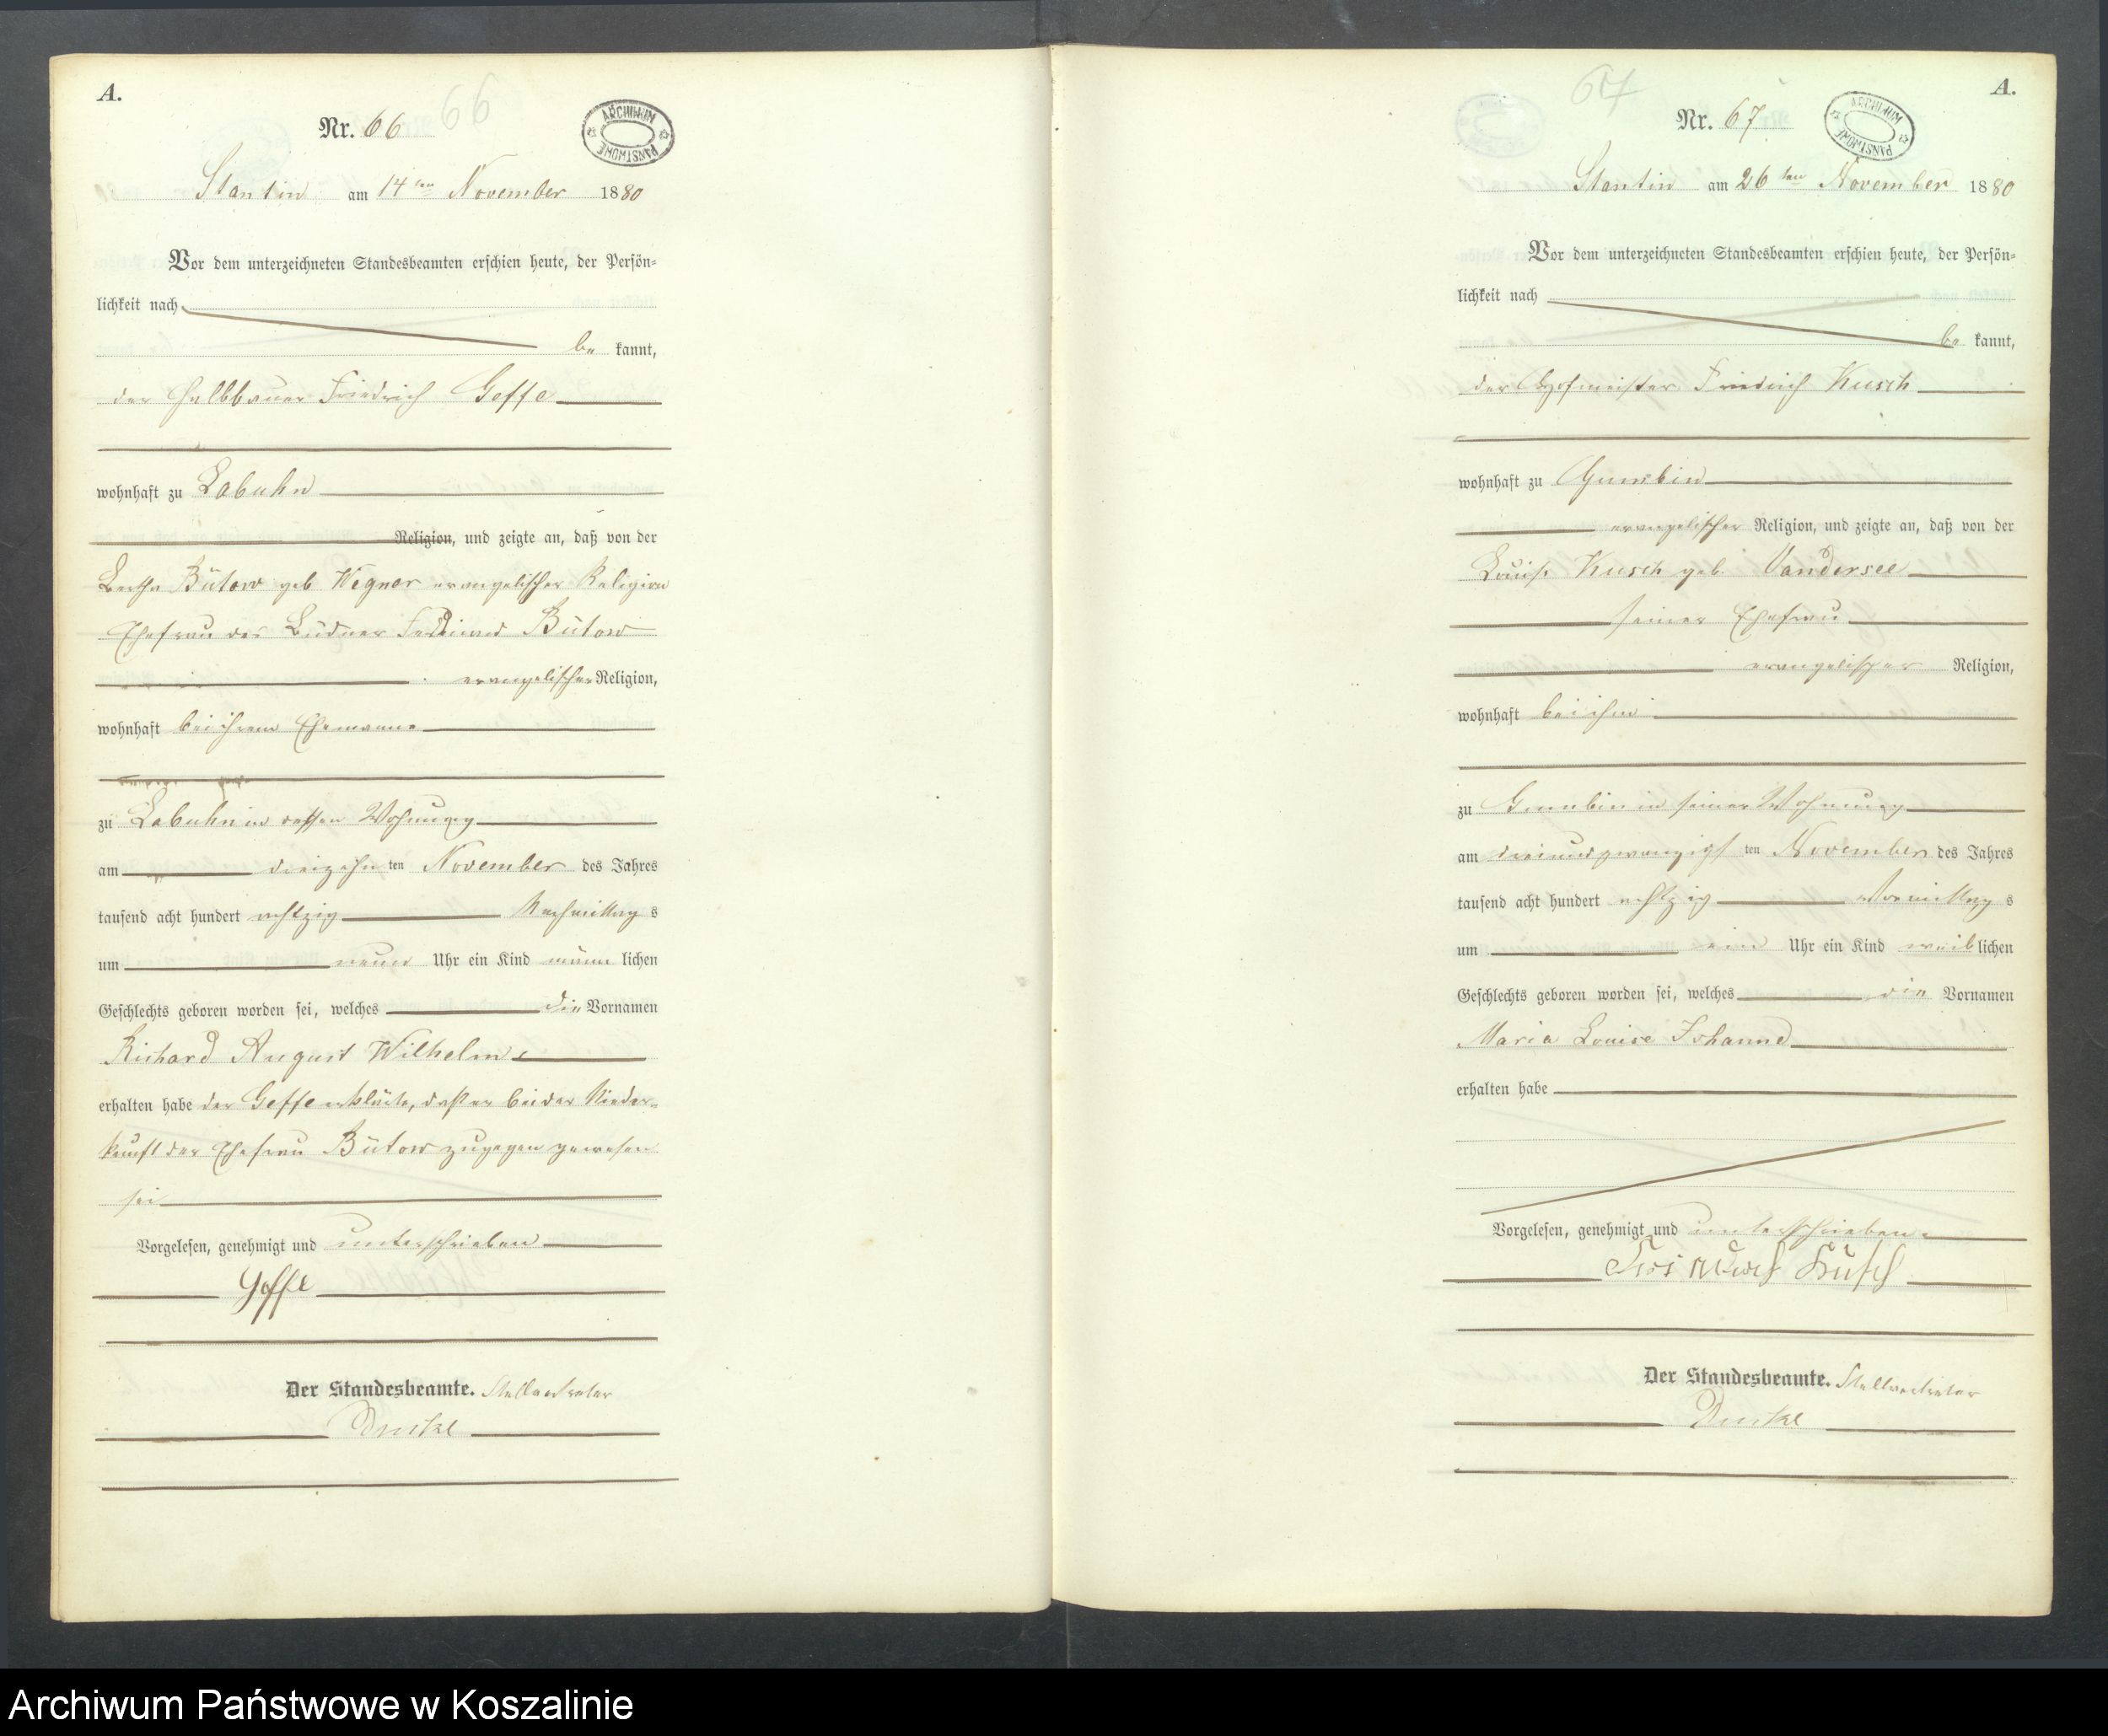 A.
Nr. 66 66
ARCHIWUM PAŃSTWOWE
Stantin am 14ten November 1880
Vor dem unterzeichneten Standesbeamten erschien heute, der Persön=
lichkeit nach
be kannt,
der Halbbauer Friedrich Geffe
wohnhaft zu Labuhn
Religion, und zeigte an, daß von der
Bertha Bütow geb. Wegner evangelischer Religion
Ehefrau des Büdner Ferdinand Bütow
evangelischer Religion,
wohnhaft bei ihrem Ehemanne
zu Labuhn in dessen Wohnung
am dreizehn ten November des Jahres
tausend acht hundert achtzig Nachmittag s
um neun Uhr ein Kind männ lichen
Geschlechts geboren worden sei, welches die Vornamen
Richard August Wilhelm
erhalten habe der Geffe erklärte, daß er bei der Nieder-
kunft der Ehefrau Bütow zugegen gewesen
sei
Vorgelesen, genehmigt und unterschrieben
Geffe
Der Standesbeamte. Stellvertreter
A.
67
Nr. 67
ARCHIWUM PAŃSTWOWE
Stantin am 26ten November 1880
Vor dem unterzeichneten Standesbeamten erschien heute, der Persön=
lichkeit nach
be kannt,
der Hofmeister Friedrich Kusch
wohnhaft zu Gumbin
evangelischer Religion, und zeigte an, daß von der
Louise Kusch geb. Vandersee
seiner Ehefrau
evangelischer Religion,
wohnhaft bei ihm
zu Gumbin in seiner Wohnung
am dreiundzwanzigs ten November des Jahres
tausend acht hundert achtzig Vormittag s
um ein Uhr ein Kind weib lichen
Geschlechts geboren worden sei, welches die Vornamen
Maria Louise Johanne
erhalten habe
Vorgelesen, genehmigt und unterschrieben.
Friedrich Kusch
Der Standesbeamte. Stellvertreter
Archiwum Państwowe w Koszalinie